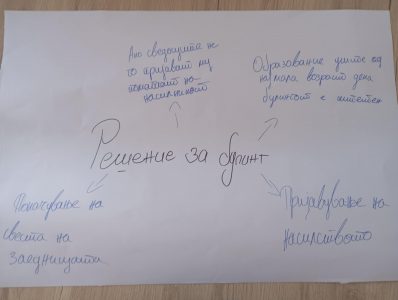 Ако сведоците не
го пријават му
помагаат на
насилникот
Образование уште од
најмала возраст дека
булингот е штетен
Решение за булинг
Покачување на
свеста на
заедницата
Пријавување на
насилството